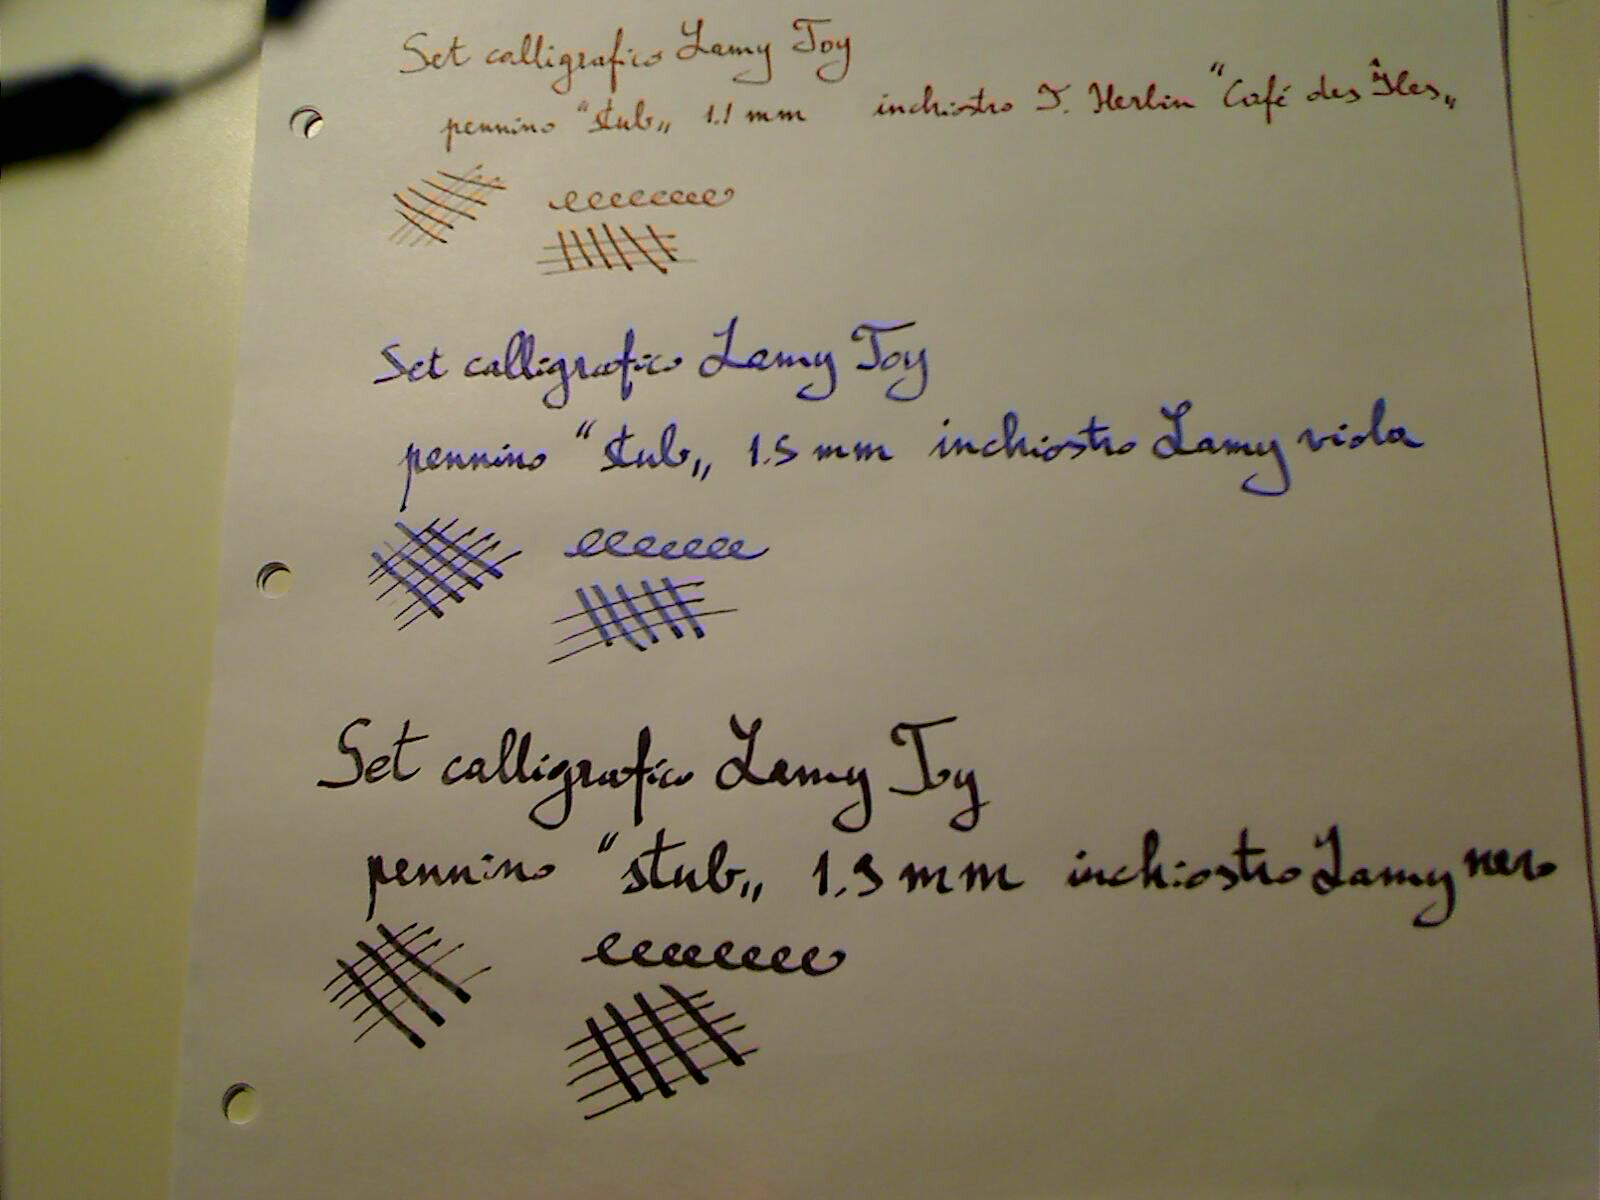 Set calligrafico Lamy Joy
pennino “stub„ 1.1 mm inchiostro J. Herbin “Café des Îles„
eeeeeeee
Set calligrafico Lamy Joy
pennino “stub„ 1.5 mm inchiostro Lamy viola
eeeeeee
Set calligrafico Lamy Joy
pennino “stub„ 1.9 mm inchiostro Lamy nero
eeeeeeee